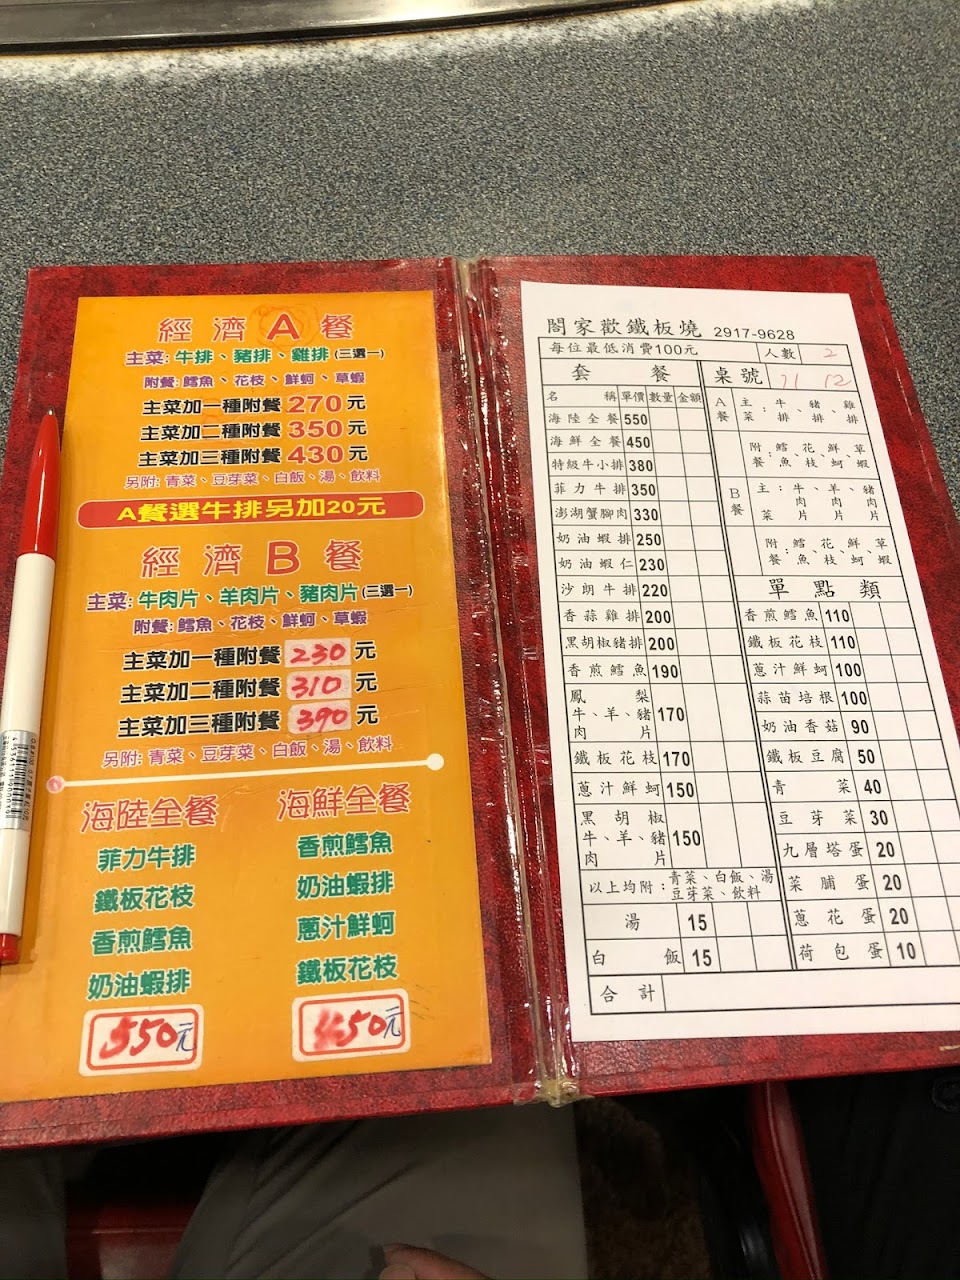 經濟A餐
主菜:牛排、豬排、雞排(三選一)
附餐:鱈魚、花枝、鮮蚵、草蝦
主菜加一種附餐270元
主菜加二種附餐350元
主菜加三種附餐430元
另附:青菜、豆芽菜、白飯、湯、飲料
A餐選牛排另加20元
經濟B餐
主菜:牛肉片、羊肉片、豬肉片(三選一)
附餐:鱈魚、花枝、鮮蚵、草蝦
主菜加一種附餐230元
主菜加二種附餐310元
主菜加三種附餐390元
另附:青菜、豆芽菜、白飯、湯、飲料
海陸全餐
菲力牛排
鐵板花枝
香煎鱈魚
奶油蝦排
550元
海鮮全餐
香煎鱈魚
奶油蝦排
蔥汁鮮蚵
鐵板花枝
450元
閤家歡鐵板燒 2917-9628
每位最低消費100元
人數 2
套餐
桌號 11 12
名稱 單價 數量 金額
海陸全餐 550
海鮮全餐 450
特級牛小排 380
菲力牛排 350
澎湖蟹腳肉 330
奶油蝦排 250
奶油蝦仁 230
沙朗牛排 220
香蒜雞排 200
黑胡椒豬排 200
香煎鱈魚 190
鳳梨牛、羊、豬肉片 170
鐵板花枝 170
蔥汁鮮蚵 150
黑胡椒牛、羊、豬肉片 150
以上均附:青菜、白飯、湯、豆芽菜、飲料
湯 15
白飯 15
合計
A餐
主菜:牛排、豬排、雞排
附餐:鱈魚、花枝、鮮蚵、草蝦
B餐
主菜:牛肉片、羊肉片、豬肉片
附餐:鱈魚、花枝、鮮蚵、草蝦
單點類
香煎鱈魚 110
鐵板花枝 110
蔥汁鮮蚵 100
蒜苗培根 100
奶油香菇 90
鐵板豆腐 50
青菜 40
豆芽菜 30
九層塔蛋 20
菜脯蛋 20
蔥花蛋 20
荷包蛋 10